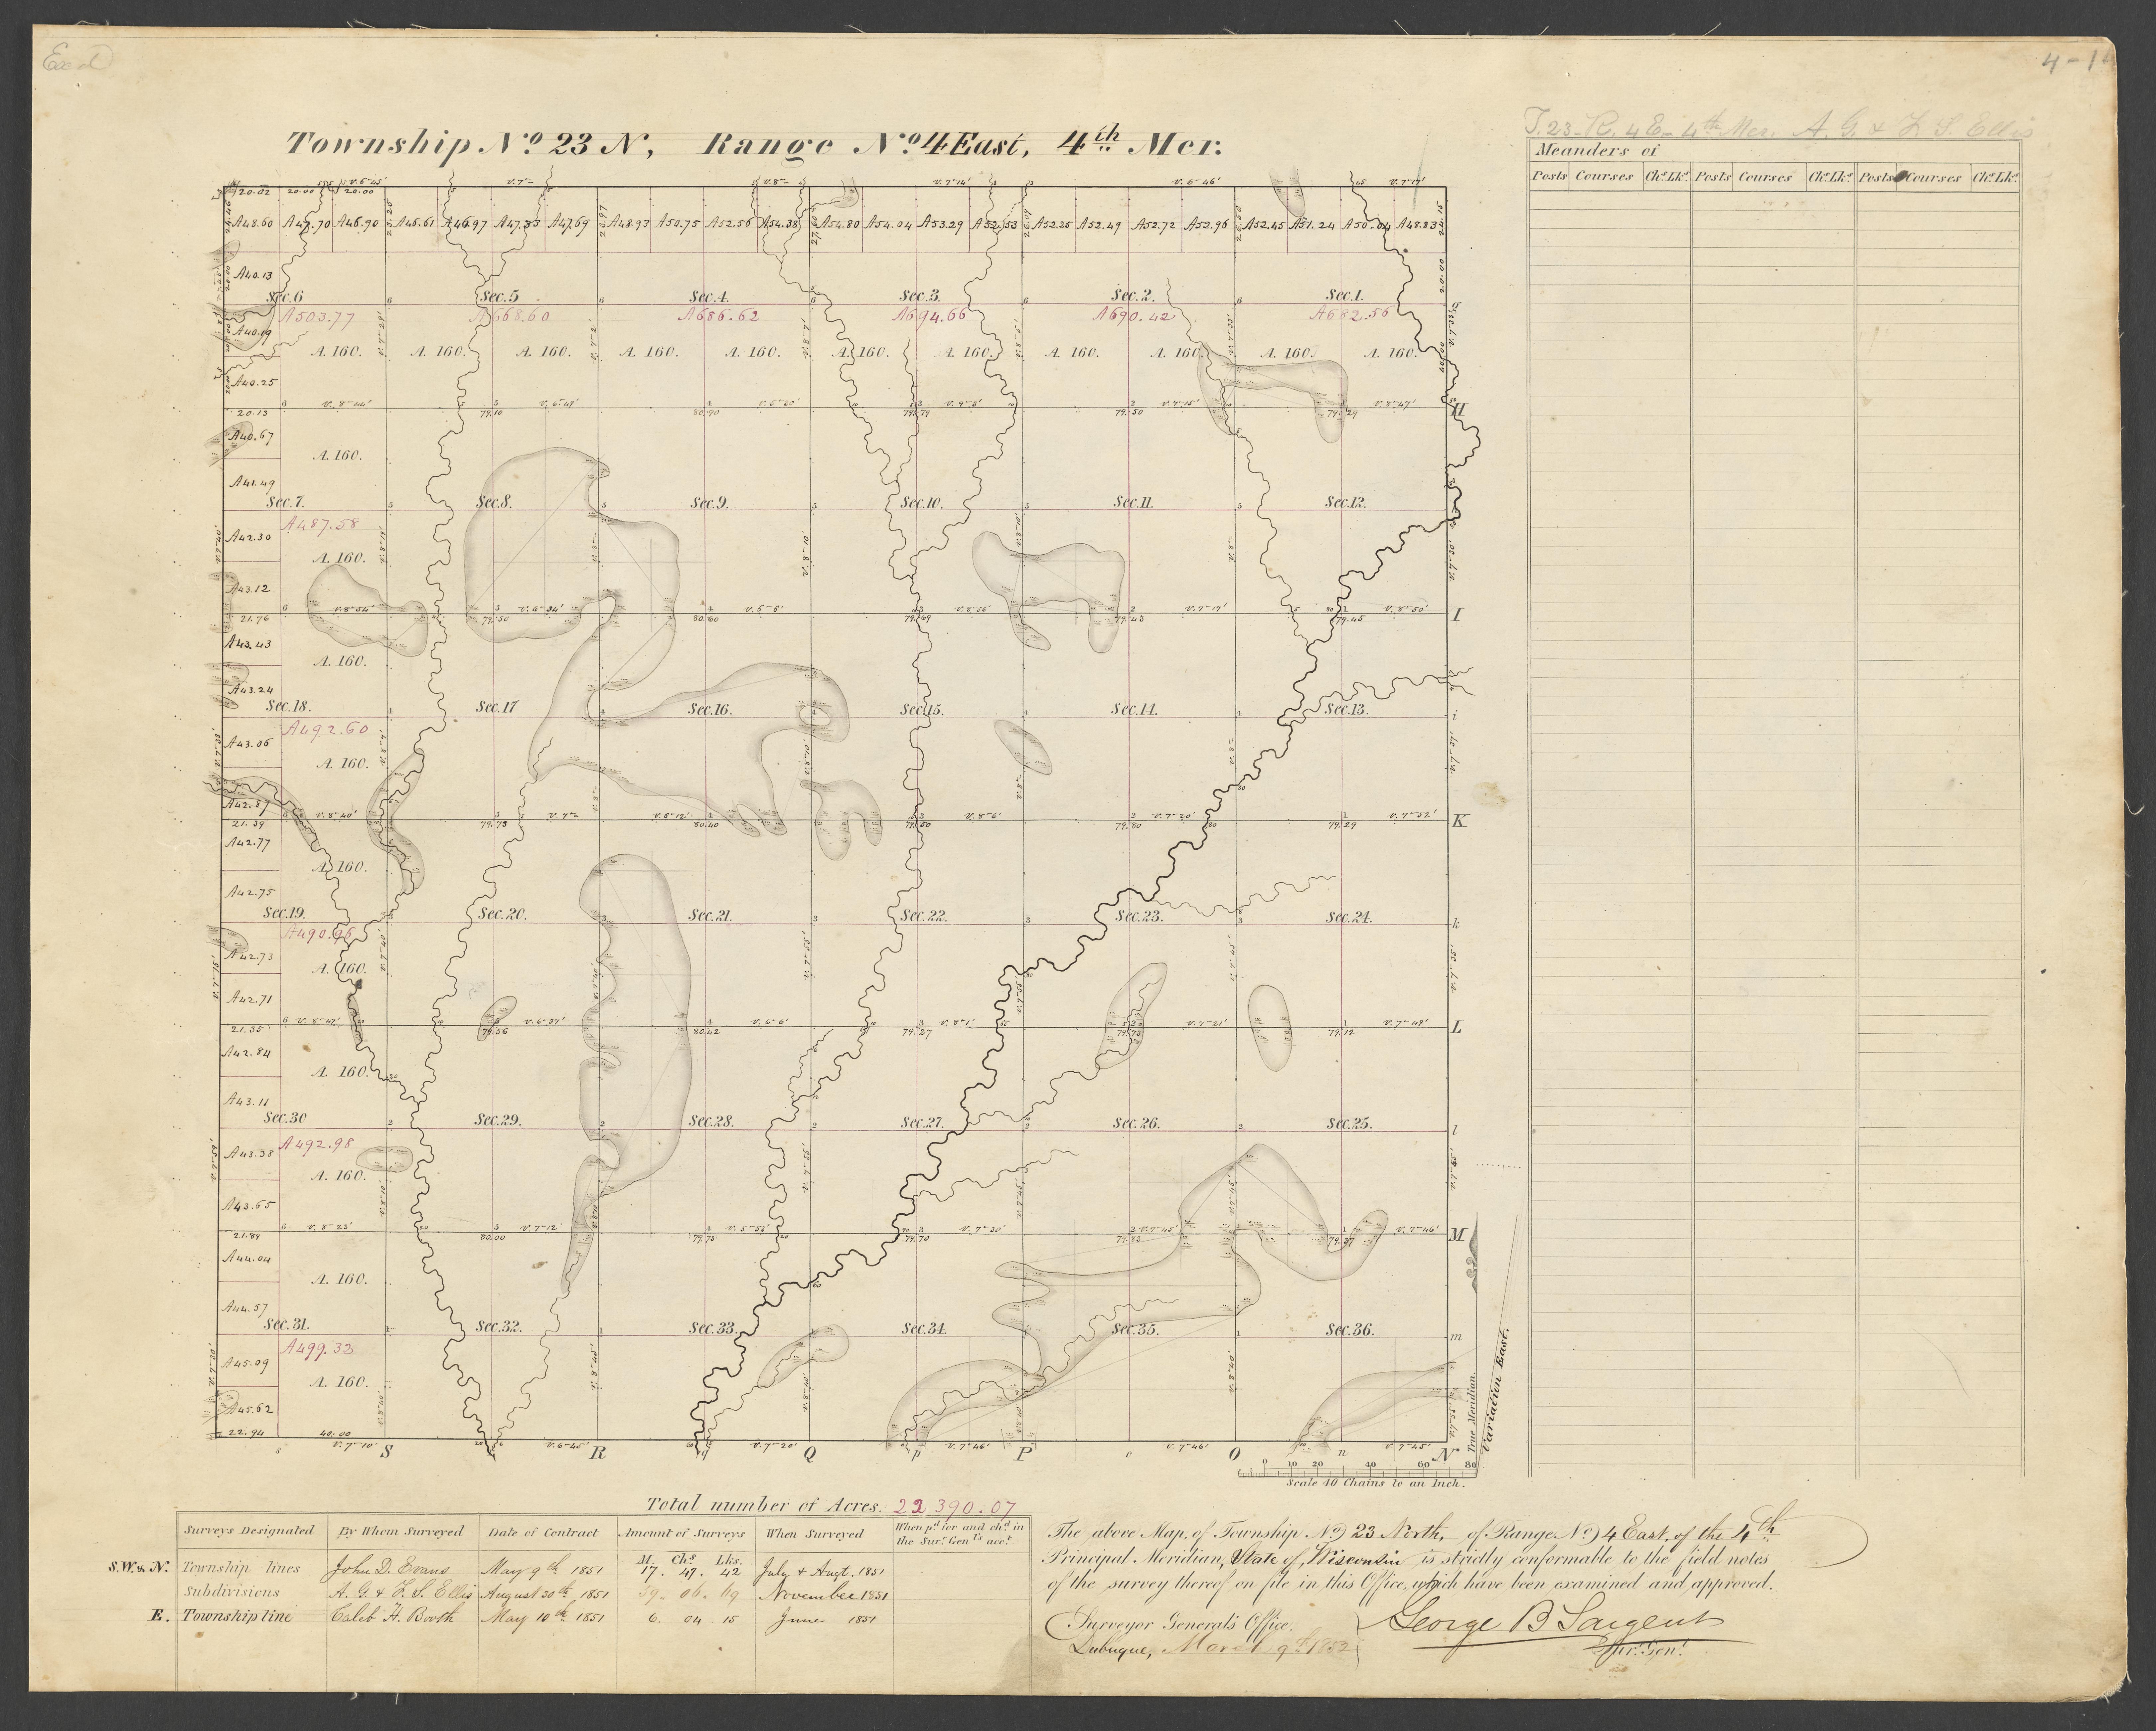 4-14
T. 23. R. 4 E. 4th Mer. A. G. & F. S. Ellis
Township No. 23 N, Range No. 4 East, 4th Mer.
Meanders of
Posts Courses Chs.Lks. Posts Courses Chs.Lks. Posts Courses Chs.Lks.
20.02 20.00 20.00
A48.60 A47.70 A46.90 A46.61 A46.97 A47.33 A47.69 A48.93 A50.75 A52.56 A54.38 A54.80 A54.04 A53.29 A52.53 A52.25 A52.49 A52.72 A52.96 A52.45 A51.24 A50.04 A48.83
A40.13
Sec.6 Sec.5 Sec.4. Sec.3. Sec.2. Sec.1.
A503.77 A668.60 A686.62 A694.66 A690.42 A682.56
A40.19
A.160. A.160. A.160. A.160. A.160. A.160. A.160. A.160. A.160. A.160. A.160.
A40.25
20.13 79.10 80.90 79.79 79.50 79.24 H
A40.67
A.160.
A41.49
Sec.7. Sec.8. Sec.9. Sec.10. Sec.11. Sec.12.
A487.58
A42.30
A.160.
A43.12
21.76 79.50 80.60 79.69 79.43 79.45 I
A43.43
A.160.
A43.24
Sec.18. Sec.17 Sec.16. Sec.15. Sec.14. Sec.13. i
A492.60
A43.06
A.160.
A42.87
21.39 79.73 80.40 79.50 79.80 79.29 K
A42.77
A.160.
A42.75
Sec.19. Sec.20. Sec.21. Sec.22. Sec.23. Sec.24. k
A490.96
A42.73
A.160.
A42.71
21.35 79.56 80.42 79.27 79.73 79.12 L
A42.84
A.160.
A43.11
Sec.30 Sec.29. Sec.28. Sec.27. Sec.26. Sec.25. l
A492.98
A43.38
A.160.
A43.65
21.89 80.00 79.75 79.70 79.83 79.37 M
A44.04
A.160.
A44.57
Sec.31. Sec.32. Sec.33. Sec.34. Sec.35. Sec.36. m
A499.32
A45.09
A.160.
A45.62
22.94 40.00
S R Q P O n N
True Meridian.
Variation East.
0 10 20 40 60 80
Scale 40 Chains to an Inch.
Total number of Acres. 22 390.07
Surveys Designated By Whom Surveyed Date of Contract Amount of Surveys When Surveyed When pd. for and chd. in the Sur. Genl's acct.
M. Chs. Lks.
S.W.& N. Township lines John D. Evans May 9th 1851 17. 47. 42 July & Augt. 1851
Subdivisions A. G. & F. S. Ellis August 30th 1851 59. 06. 69 November 1851
E. Township line Caleb H. Booth May 10th 1851 6. 04 15 June 1851
The above Map, of Township No. 23 North, of Range No. 4 East, of the 4th
Principal Meridian, State of, Wisconsin is strictly conformable to the field notes
of the survey thereof on file in this Office, which have been examined and approved.
Surveyor General's Office.
Dubuque, March 9th 1852
George B Sargent
Sur. Genl.